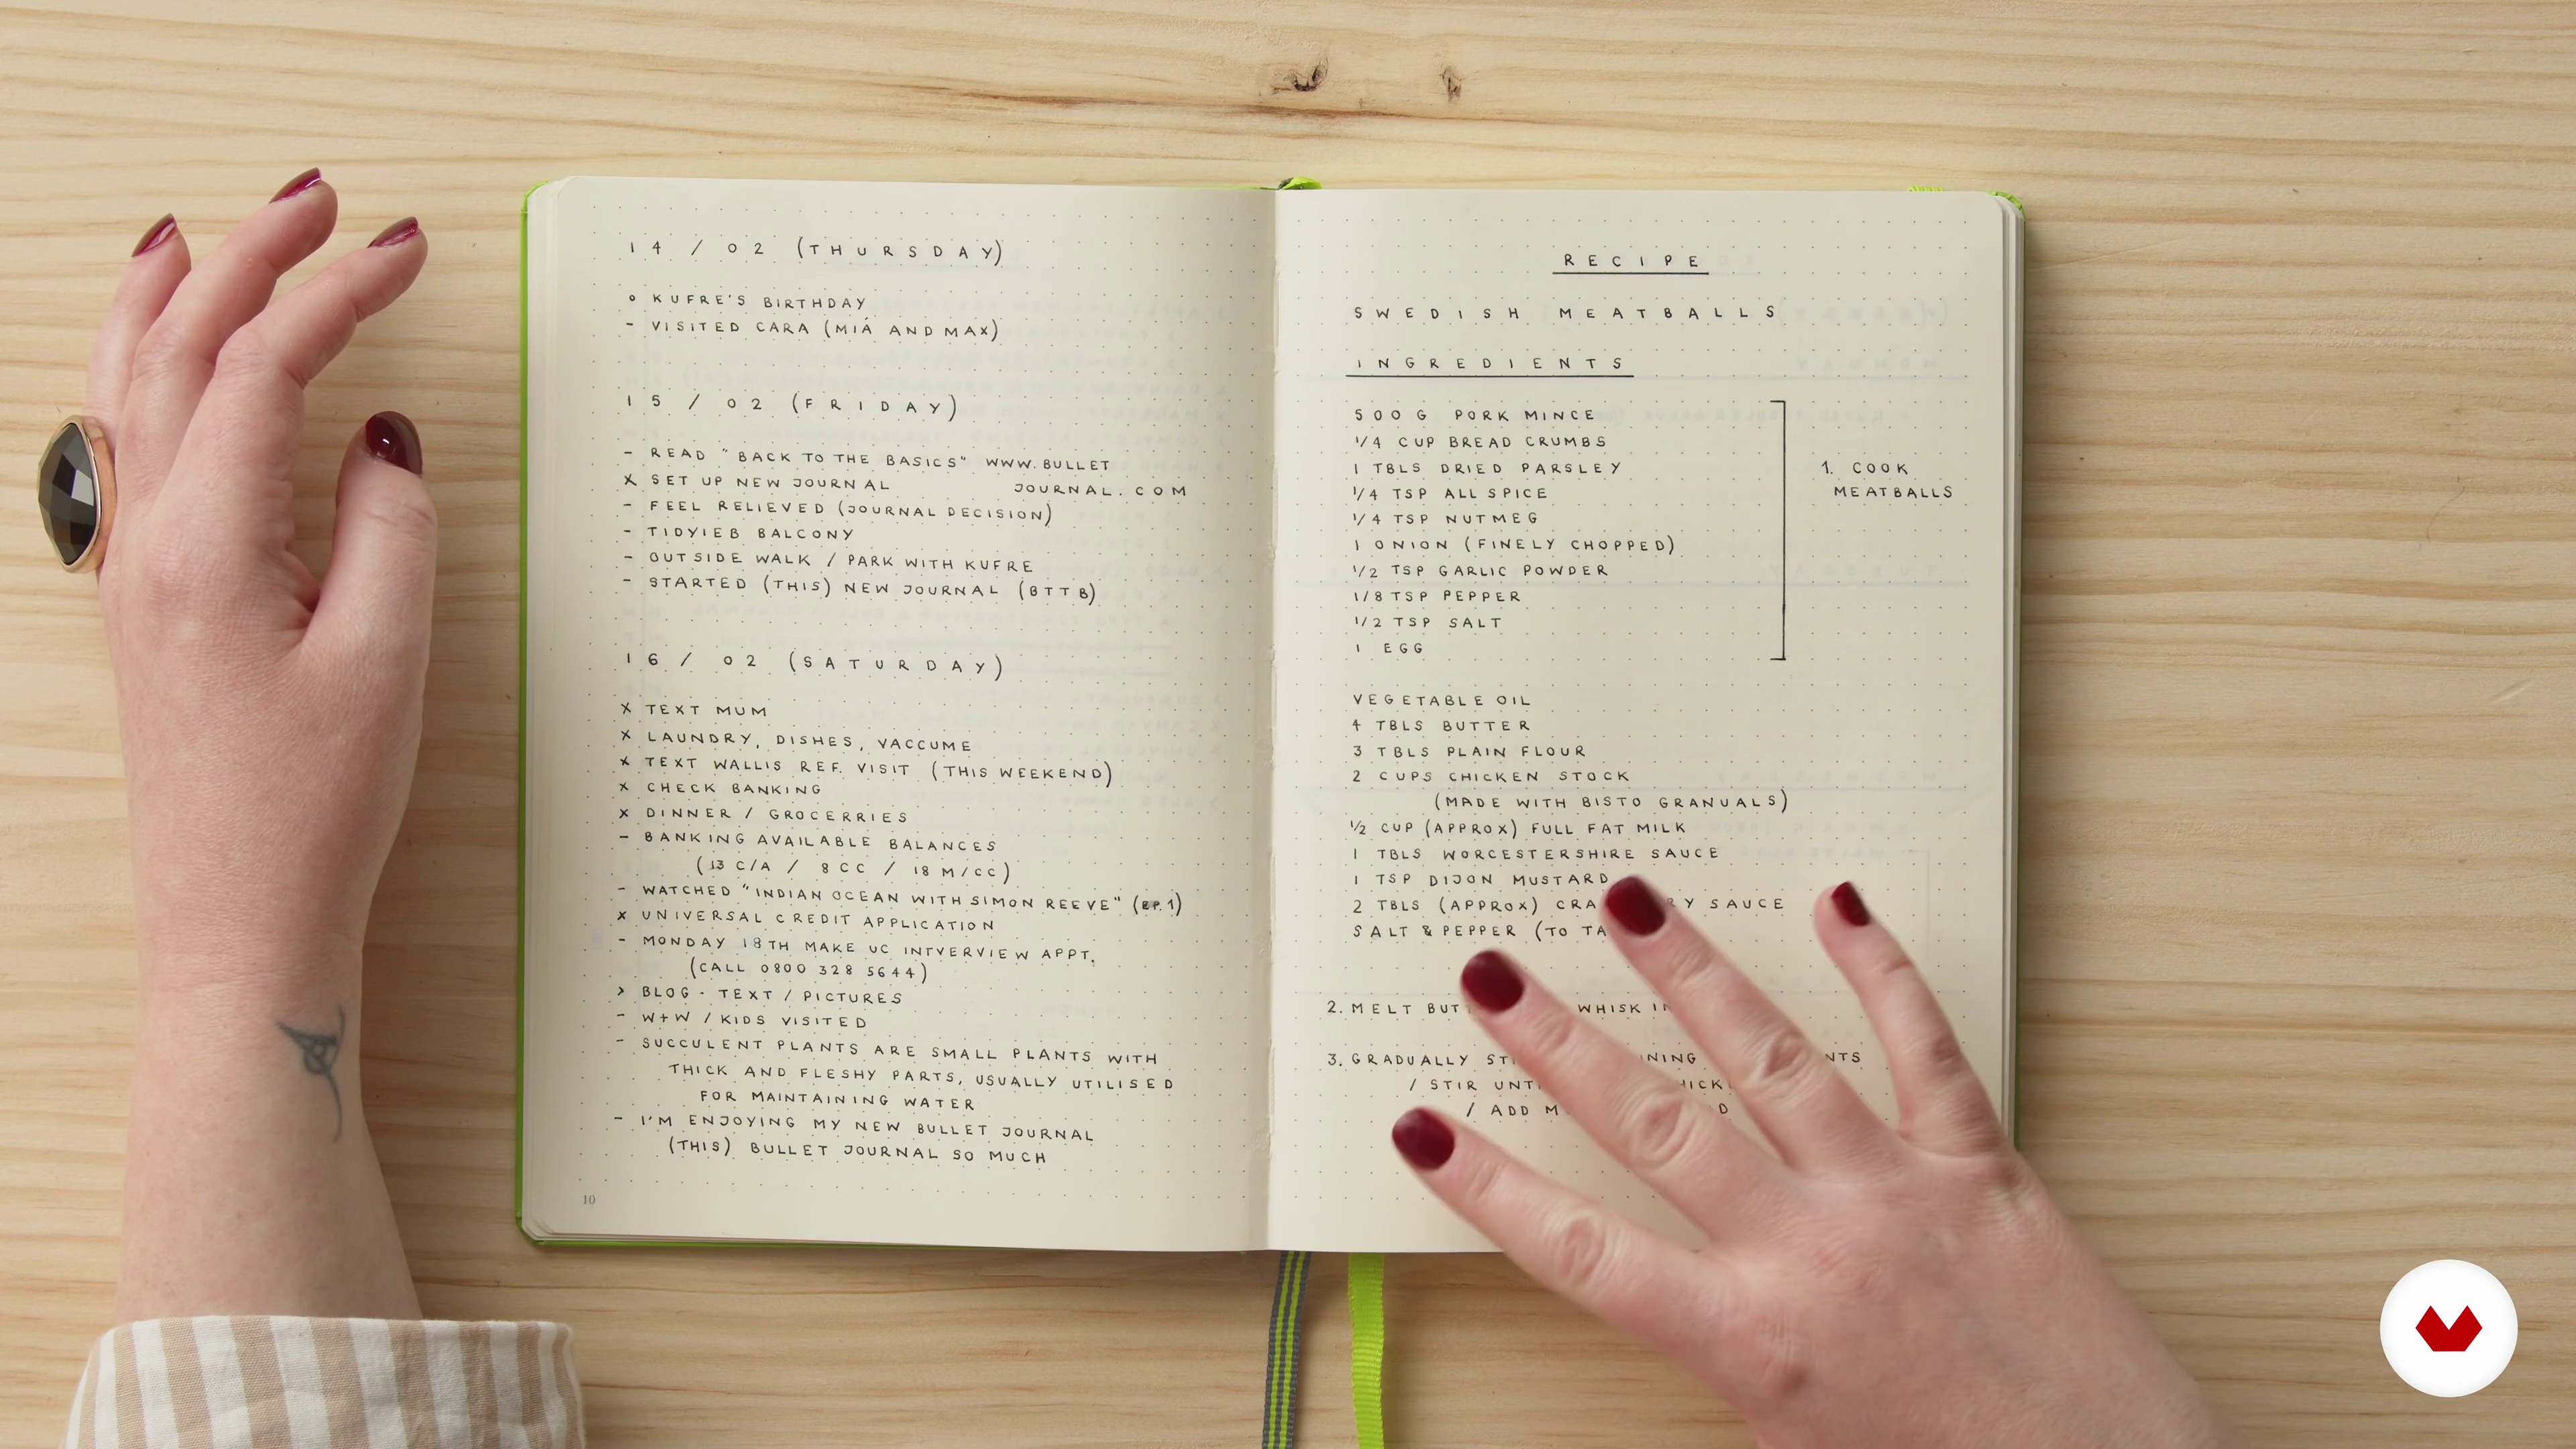 14 / 02 (THURSDAY)
° KUFRE'S BIRTHDAY
- VISITED CARA (MIÁ AND MAX)
15 / 02 (FRIDAY)
- READ "BACK TO THE BASICS" WWW.BULLET
X SET UP NEW JOURNAL JOURNAL.COM
- FEEL RELIEVED (JOURNAL DECISION)
- TIDYIEB BALCONY
- OUTSIDE WALK / PARK WITH KUFRE
- STARTED (THIS) NEW JOURNAL (BTTB)
16 / 02 (SATURDAY)
X TEXT MUM
X LAUNDRY, DISHES, VACCUME
X TEXT WALLIS REF. VISIT (THIS WEEKEND)
X CHECK BANKING
X DINNER / GROCERRIES
- BANKING AVAILABLE BALANCES
(13 C/A / 8 CC / 18 M/CC)
- WATCHED "INDIAN OCEAN WITH SIMON REEVE" (EP.1)
X UNIVERSAL CREDIT APPLICATION
- MONDAY 18TH MAKE UC INTVERVIEW APPT.
(CALL 0800 328 5644)
> BLOG - TEXT / PICTURES
- W+W / KIDS VISITED
- SUCCULENT PLANTS ARE SMALL PLANTS WITH
THICK AND FLESHY PARTS, USUALLY UTILISED
FOR MAINTAINING WATER
- I'M ENJOYING MY NEW BULLET JOURNAL
(THIS) BULLET JOURNAL SO MUCH
10
RECIPE
SWEDISH MEATBALLS
INGREDIENTS
500 G PORK MINCE
1/4 CUP BREAD CRUMBS
1 TBLS DRIED PARSLEY
1/4 TSP ALL SPICE
1/4 TSP NUTMEG
1 ONION (FINELY CHOPPED)
1/2 TSP GARLIC POWDER
1/8 TSP PEPPER
1/2 TSP SALT
1 EGG
1. COOK
MEATBALLS
VEGETABLE OIL
4 TBLS BUTTER
3 TBLS PLAIN FLOUR
2 CUPS CHICKEN STOCK
(MADE WITH BISTO GRANUALS)
1/2 CUP (APPROX) FULL FAT MILK
1 TBLS WORCESTERSHIRE SAUCE
1 TSP DIJON MUSTARD
2 TBLS (APPROX) SAUCE
SALT & PEPPER (TO
2. MELT WHISK
3. GRADUALLY
/ STIR
/ ADD